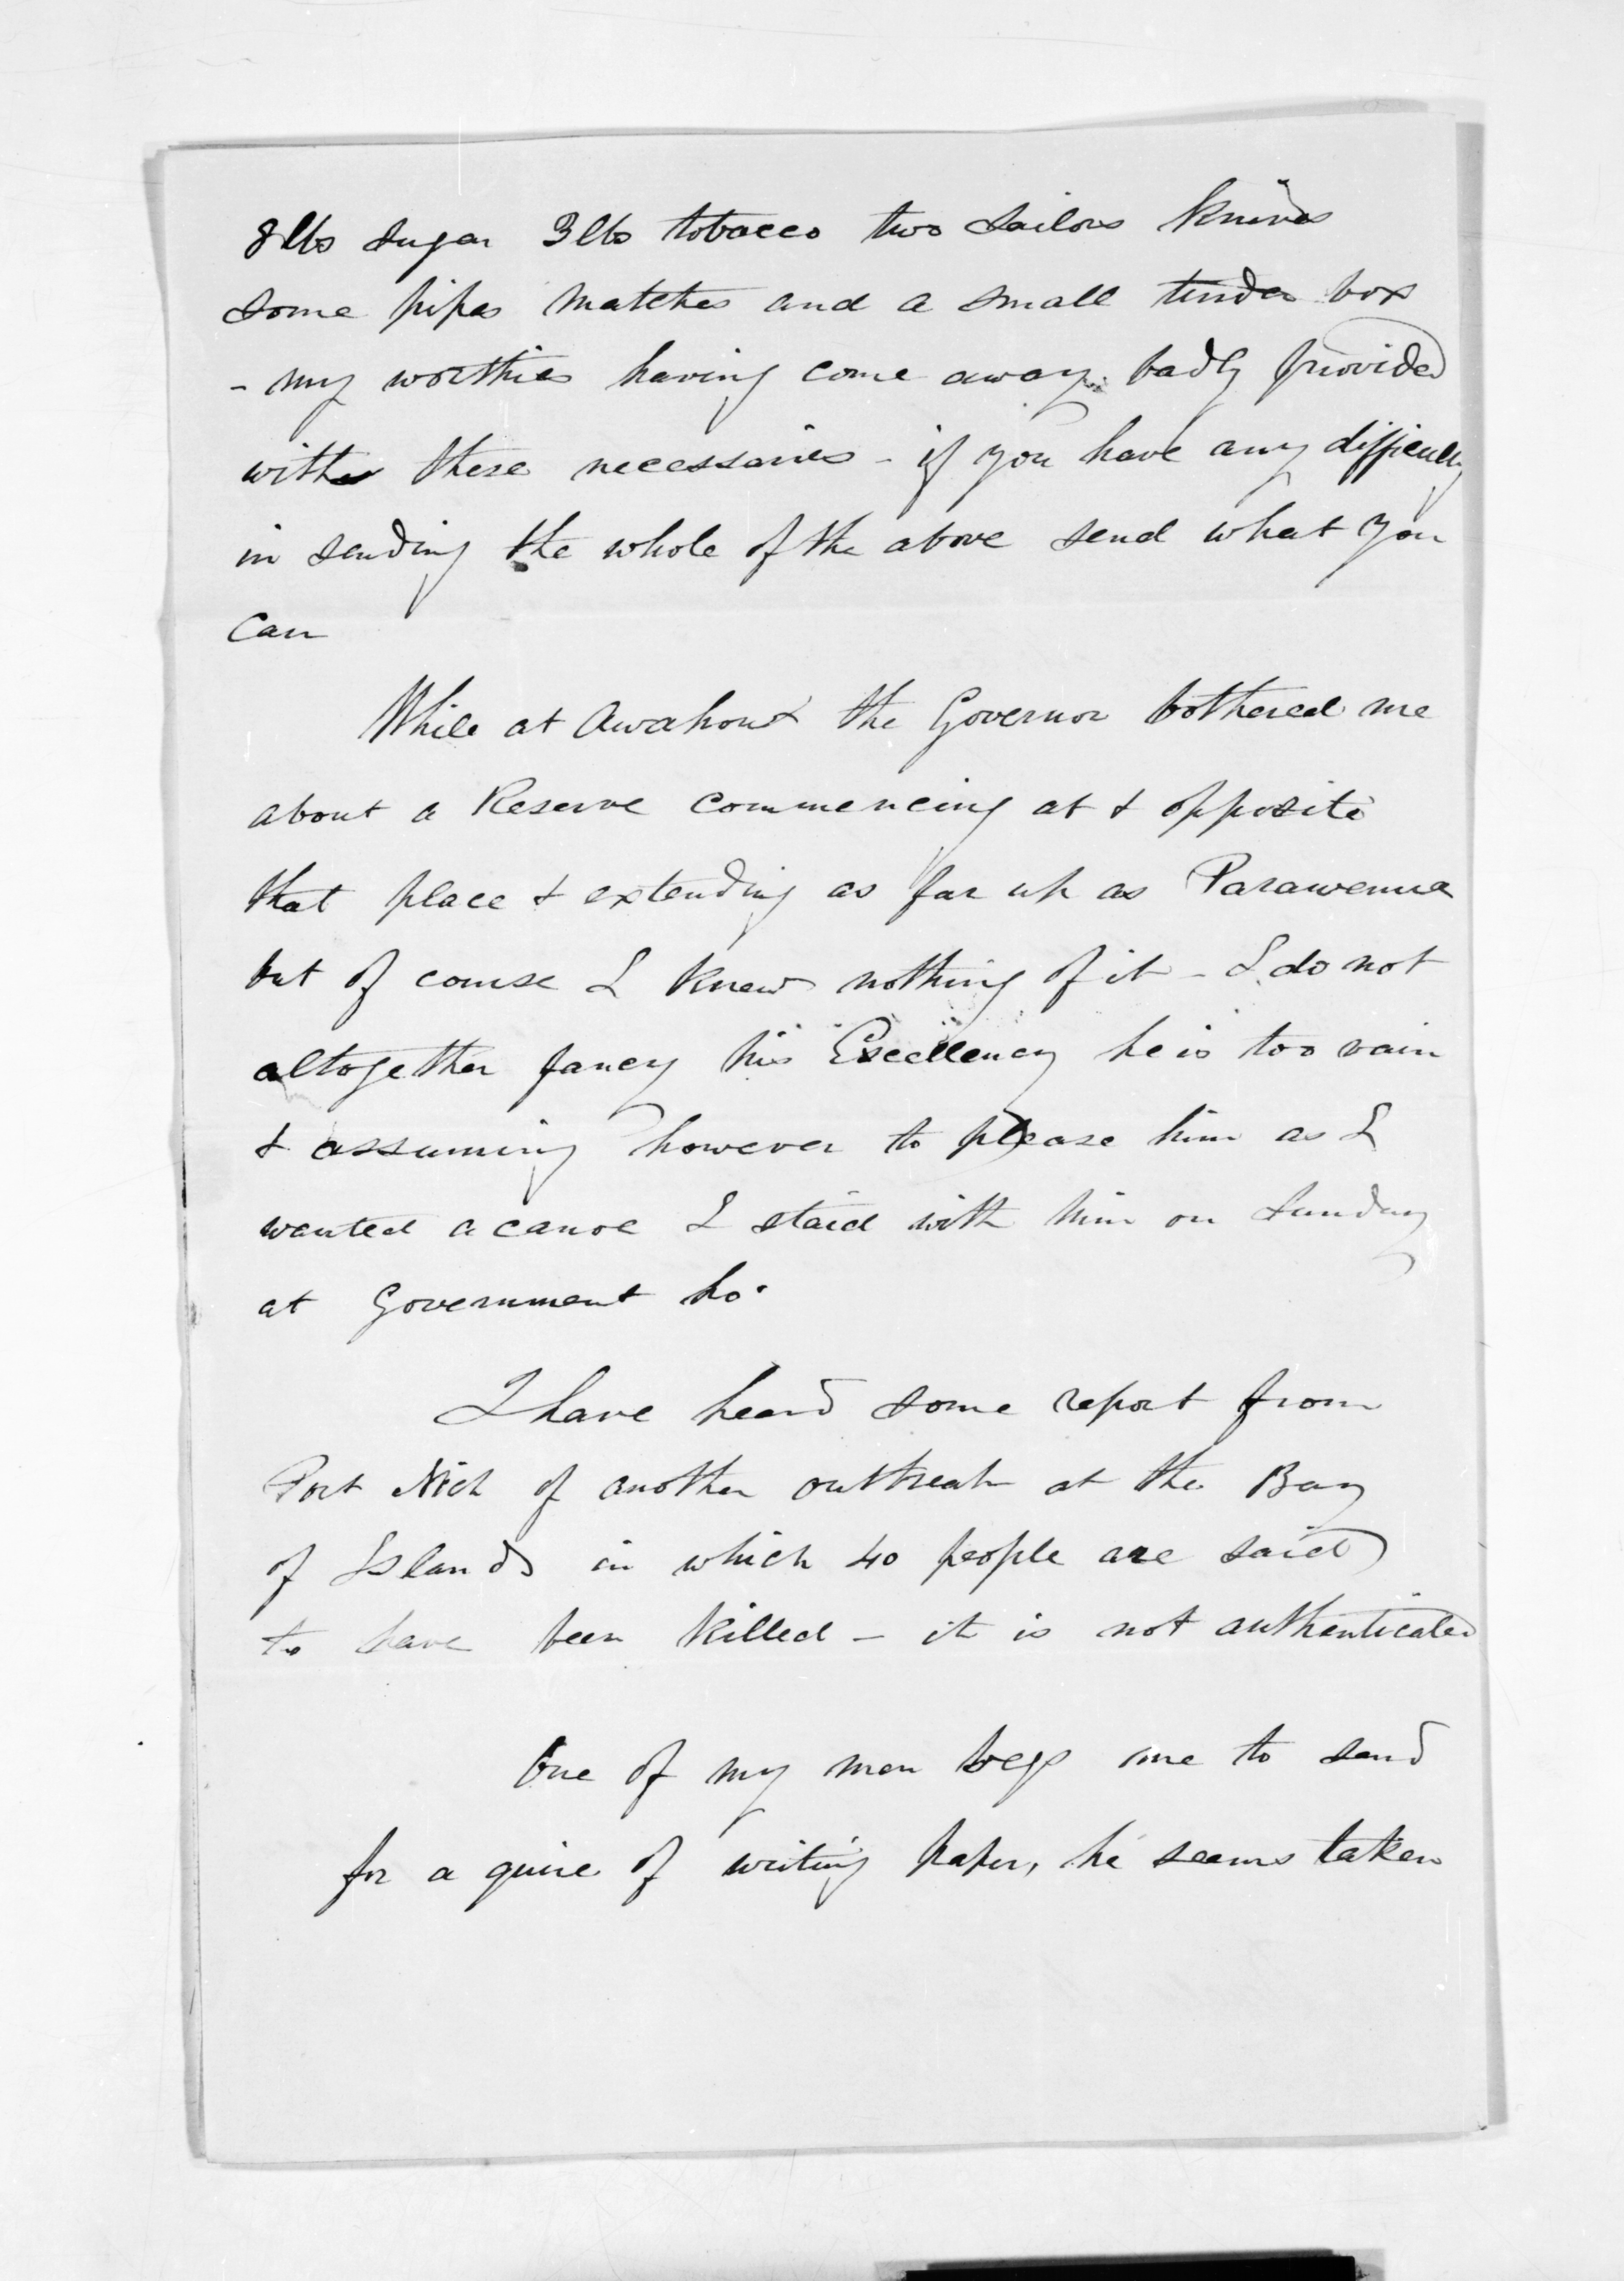 8 lbs sugar 3 lbs tobacco two sailors knives
some pipes matches and a small tinder box
- my worthies having come away badly provided
with these necessaries - if you have any difficulty
in sending the whole of the above send what you
can
While at Awahou the Governor bothered me
about a Reserve commencing at & opposite
that place & extending as far up as Parawenua
but of course I knew nothing of it - I do not
altogether fancy his Excellency he is too vain
& assuming however to please him as I
wanted a canoe I staid with him on Sunday
at Government ho.
I have heard some report from
Port Nich of another outbreak at the Bay
of Islands in which 40 people are said
to have been killed - it is not authenticated
One of my men begs me to send
for a quire of writing paper, he seems taken